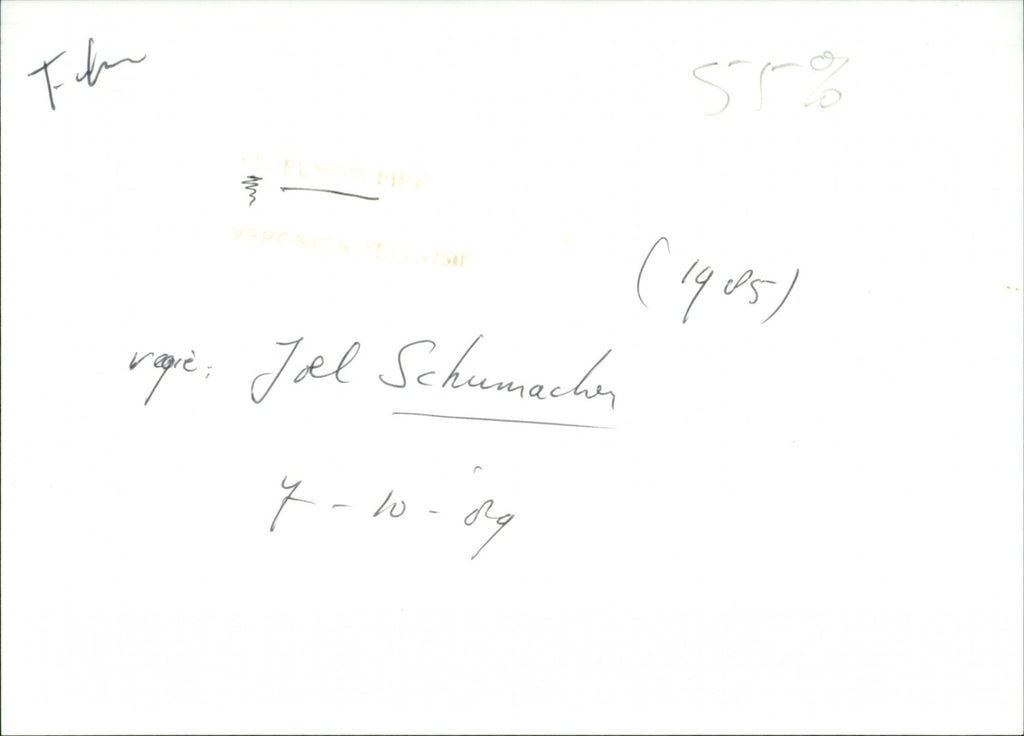 55%
ST. ELMO'S FIRE
VERONICA TELEVISIE
(1985)
regie: Joel Schumacher
7-10-89